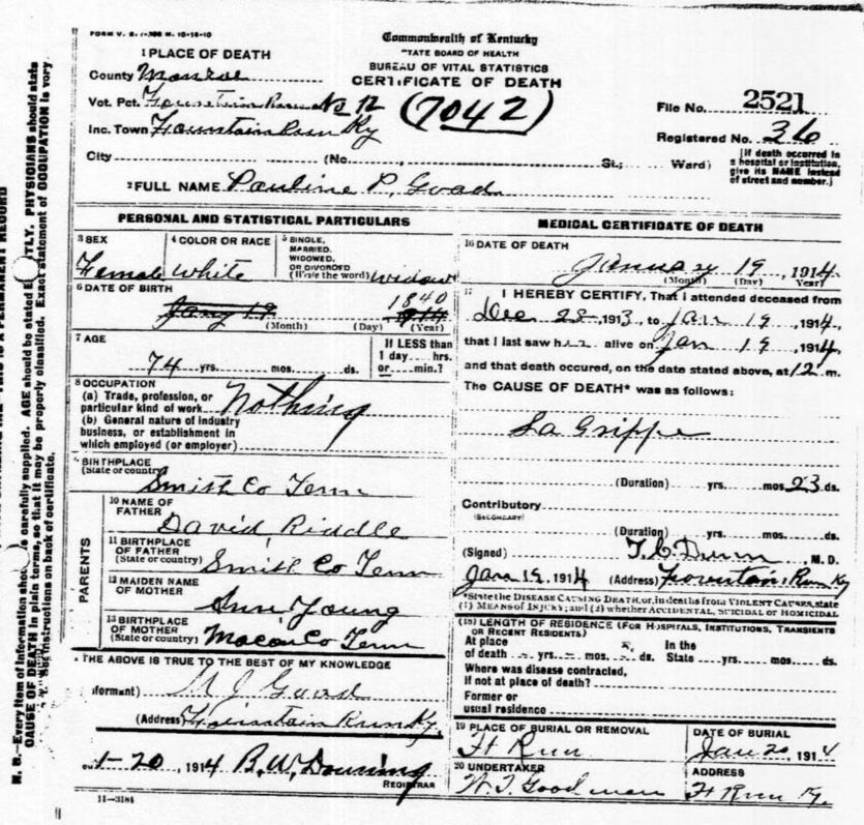 FORM V. S. 1-
Commonwealth of Kentucky
STATE BOARD OF HEALTH
BUREAU OF VITAL STATISTICS
CERTIFICATE OF DEATH
1 PLACE OF DEATH
County Monroe
Vot. Pct. Fountain Run No 12
(7042)
File No. 2521
Inc. Town Fountain Run Ky
Registered No. 36
City (No. , St.; Ward)
(If death occurred in a hospital or institution, give its NAME instead of street and number.)
2 FULL NAME Pauline P. Goad
PERSONAL AND STATISTICAL PARTICULARS
3 SEX
Female
4 COLOR OR RACE
White
5 SINGLE, MARRIED, WIDOWED, OR DIVORCED
(Write the word) widow
6 DATE OF BIRTH
Jany 19 1840
(Month) (Day) (Year)
7 AGE
74 yrs. mos. ds.
If LESS than
1 day hrs.
or min.?
8 OCCUPATION
(a) Trade, profession, or
particular kind of work Nothing
(b) General nature of industry
business, or establishment in
which employed (or employer)
9 BIRTHPLACE
(State or country)
Smith Co Tenn
PARENTS
10 NAME OF FATHER
David Riddle
11 BIRTHPLACE OF FATHER
(State or country) Smith Co Tenn
12 MAIDEN NAME OF MOTHER
Ann Young
13 BIRTHPLACE OF MOTHER
(State or country) Macon Co Tenn
THE ABOVE IS TRUE TO THE BEST OF MY KNOWLEDGE
(Informant) J Goad
(Address) Fountain Run Ky
1-20, 1914 B. W. Downing
REGISTRAR
11-3184
MEDICAL CERTIFICATE OF DEATH
16 DATE OF DEATH
January 19, 1914
(Month) (Day) (Year)
17 I HEREBY CERTIFY, That I attended deceased from
Dec 28, 1913, to Jan 19, 1914,
that I last saw her alive on Jan 19, 1914,
and that death occured, on the date stated above, at 12 m.
The CAUSE OF DEATH* was as follows:
La Grippe
(Duration) yrs. mos. 23 ds.
Contributory
(SECONDARY)
(Duration) yrs. mos. ds.
(Signed) T. C. Dunn M. D.
Jan 19, 1914 (Address) Fountain Run Ky
*State the DISEASE CAUSING DEATH, or, in deaths from VIOLENT CAUSES, state
(1) MEANS OF INJURY; and (2) whether ACCIDENTAL, SUICIDAL or HOMICIDAL
(18) LENGTH OF RESIDENCE (FOR HOSPITALS, INSTITUTIONS, TRANSIENTS
OR RECENT RESIDENTS)
At place of death yrs. mos. ds. In the State yrs. mos. ds.
Where was disease contracted,
if not at place of death?
Former or
usual residence
19 PLACE OF BURIAL OR REMOVAL
Ft Run
DATE OF BURIAL
Jan 20, 1914
20 UNDERTAKER
W. T. Goodman
ADDRESS
Ft Run Ky.
N. B.—Every item of information should be carefully supplied. AGE should be stated EXACTLY. PHYSICIANS should state
CAUSE OF DEATH in plain terms, so that it may be properly classified. Exact statement of OCCUPATION is very
instructions on back of certificate.